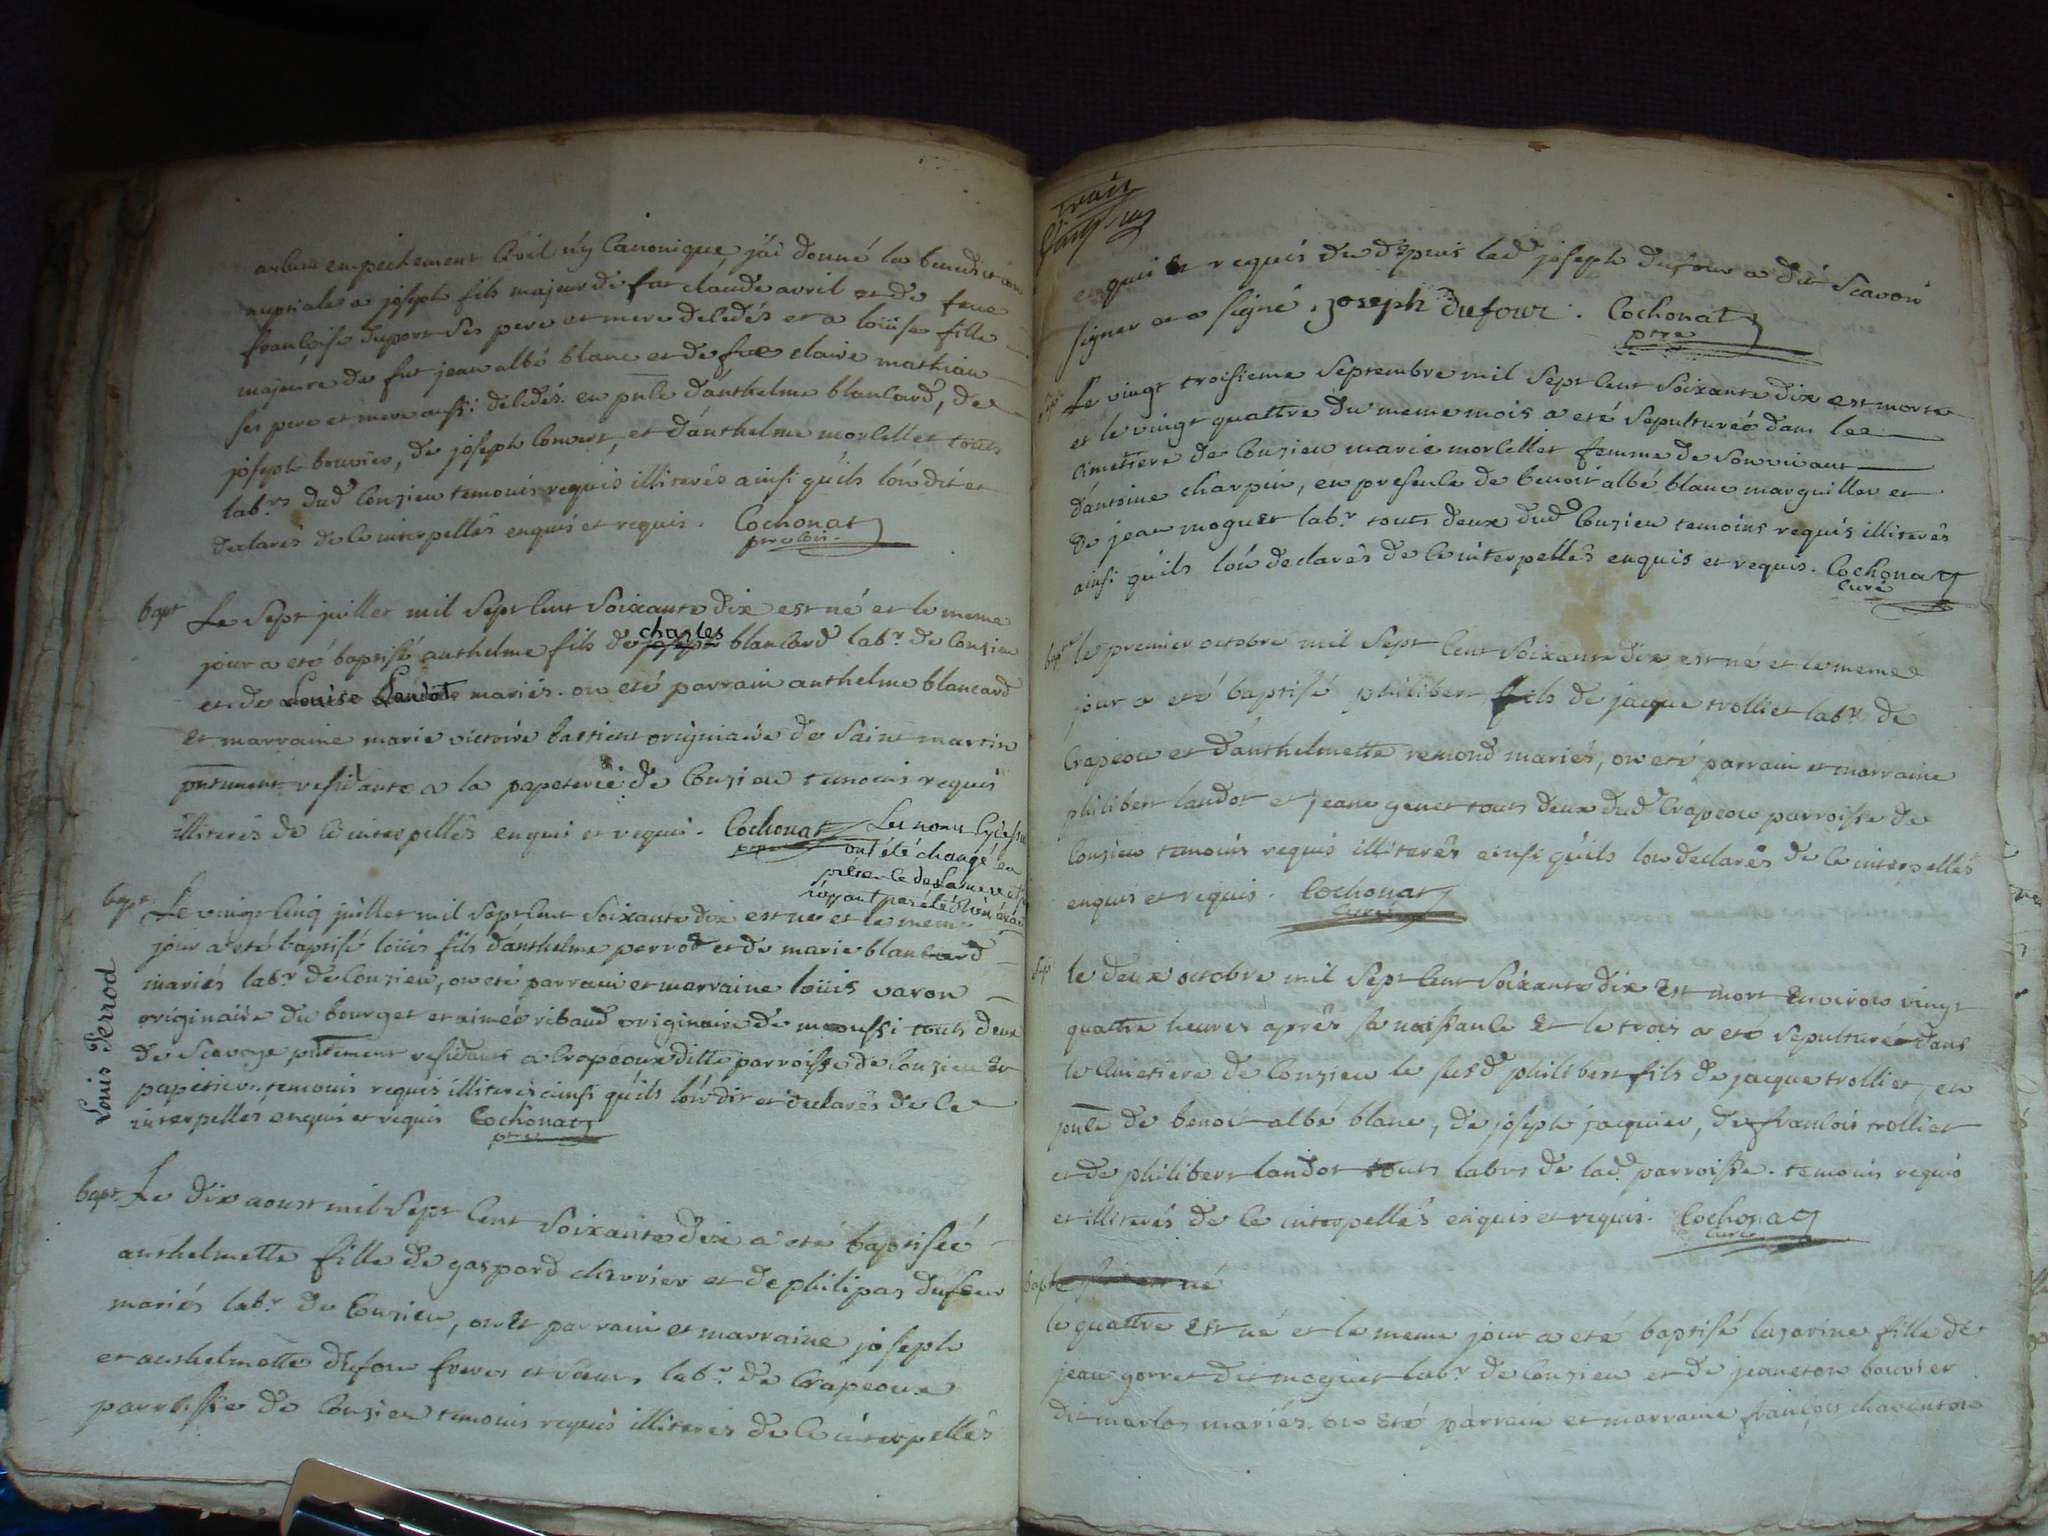 aucun empechement Civil n'y Canonique, j'ai donné la benediction
nuptiale a joseph fils majeur de fut claude avril et de feue
françoise duport ses pere et mere decedés et a loüise fille
majeure de fut jean albé blanc et de fue claire mathian
ses pere et mere aussi decedés en pnce d'anthelme blancard, de
joseph bouvier, de joseph Convert, et d'anthelme morcellet touts
labrs dud Conzieu temoins requis illiterés ainsi qu'ils l'on dit et
declarés de ce interpellés enquis et requis. Cochonat
bapt Le Sept juillet mil Sept Cent Soixante dix est né et le meme
jour a eté baptisé anthelme fils de charles blancard labr de Conzieu
et de Louise Landot mariés. on eté parrain anthelme blancard
et marraine marie victoire bastient originaire de Saint martin
pntement residante a la papeterie de Conzieu temoins requis
illiterés de ce interpellés enquis et requis. Cochonat Les noms Cydessus
ptre ont été changé en
présence de la mere et
n'ayant pas été
bapt Le vingt Cinq juillet mil Sept Cent Soixante dix est né et le meme
jour a eté baptisé loüis fils d'anthelme perrod et de marie blancard
mariés labr de Conzieu, on eté parrain et marraine loüis varon
originaire du bourget et aimée ribaud originaire de moussi touts deux
de Scavoye pntement residants a Crapeoux ditte parroisse de Conzieu et
papetier. temoins requis illiterés ainsi qu'ils l'on dit et declarés de ce
interpellés enquis et requis Cochonat
ptre
Louis Perrod
bapt Le dix aoust mil Sept Cent Soixante dix a eté baptisée
anthelmette fille de gaspard chevrier et de philipas dufour
mariés labr de Conzieu, on et parrain et marraine joseph
et anthelmette dufour freres et sœurs labr de Crapeoux
parroisse de Conzieu temoins requis illiterés de ce interpellés
enquis et requis led joseph dufour a dit Scavoir
signer et a signé. joseph dufour. Cochonat
ptre
Sep Le vingt troisieme Septembre mil Sept Cent Soixante dix est morte
et le vingt quattre du meme mois a eté Sepulturée dans le
Cimetiere de Conzieu marie morcellet femme de Son vivant
d'antoine charpin, en presence de benoit albé blanc marguiller et
de jean moguet labr touts deux dud Conzieu temoins requis illiterés
ainsi qu'ils l'on declarés de ce interpellés enquis et requis. Cochonat
Curé
bapt le premier octobre mil Sept Cent Soixante dix est né et le meme
jour a eté baptisé philibert fils de jacque trolliet labr de
Crapeou et d'anthelmette remond mariés, on eté parrain et marraine
philibert landot et jeane genet touts deux dud Crapeou parroisse de
Conzieu temoins requis illiterés ainsi qu'ils l'on declarés de ce interpellés
enquis et requis. Cochonat
Curé
Sep le deux octobre mil Sept Cent Soixante dix est mort environ vingt
quattre heures aprés sa naissance et le trois a eté sepulturé dans
le Cimetiere de Conzieu le susd philibert fils de jacque trolliet, en
pnce de benoit albé blanc, de joseph jacquier, de françois trolliet
et de philibert landot touts labrs de lad parroisse. temoins requis
et illiterés de ce interpellés enquis et requis. Cochonat
Curé
bapt né
le quattre est né et le meme jour a eté baptisé lazarine fille de
jean gorret dit moguet labr de Conzieu et de jeaneton bouvier
dit marlos mariés. on eté parrain et marraine françois chaventon